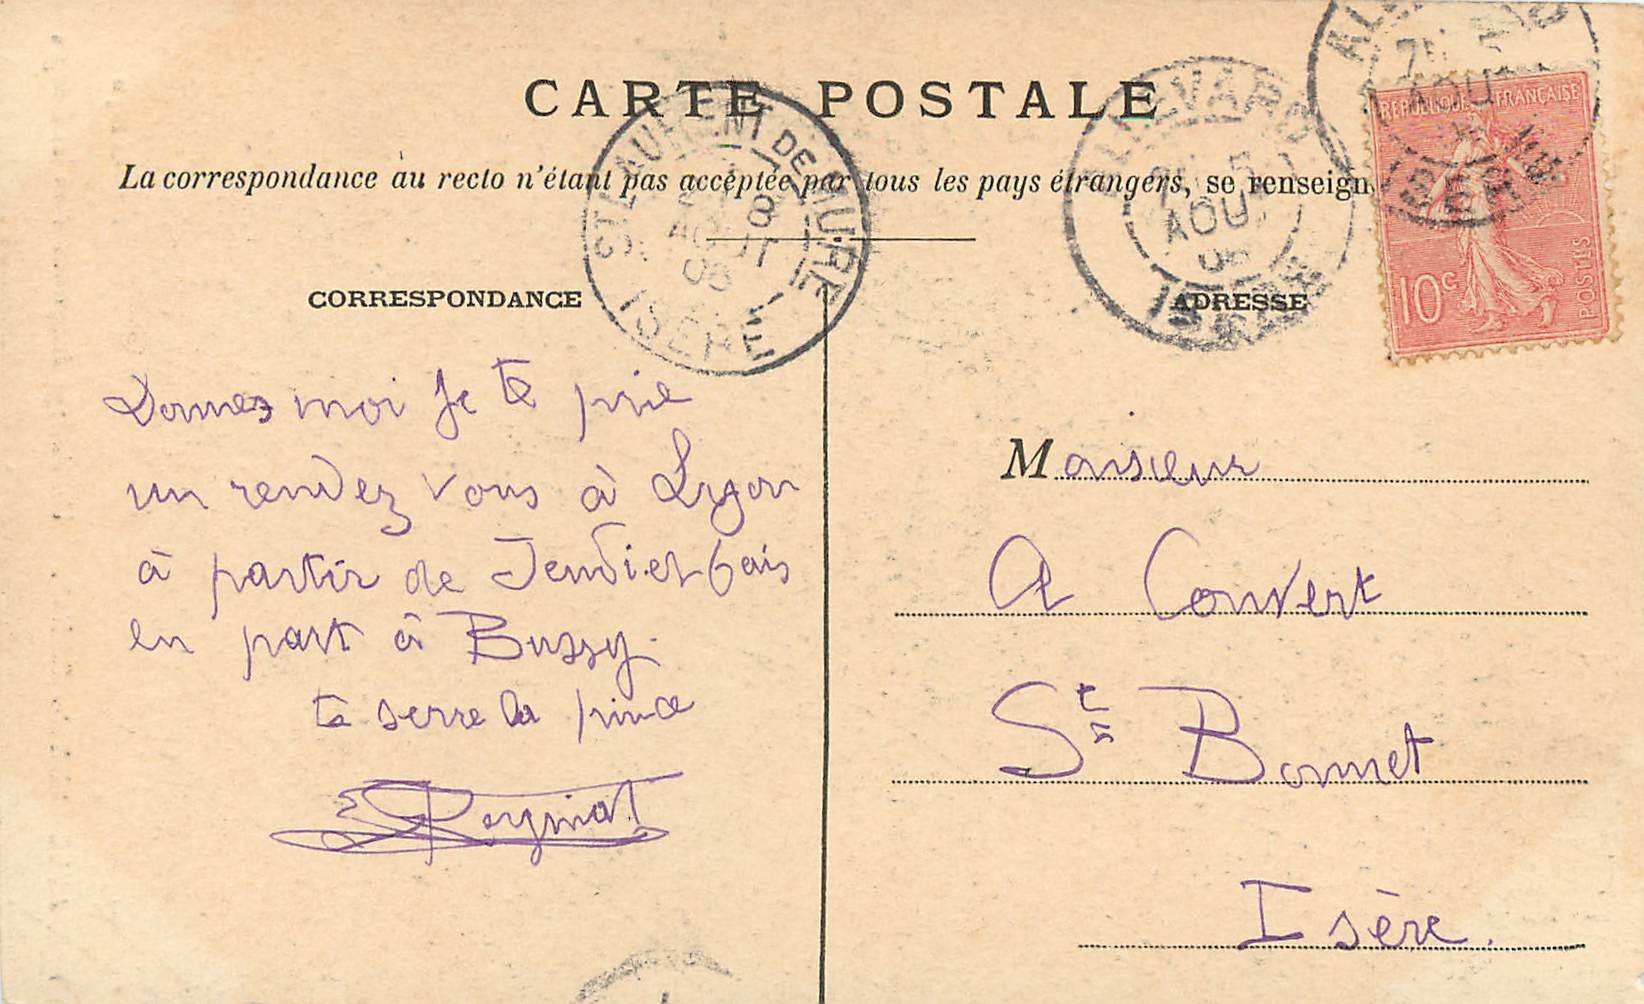 CARTE POSTALE
La correspondance au recto n'étant pas acceptée par tous les pays étrangers, se renseign
CORRESPONDANCE
Donnes moi je te prie
un rendez vous à Lyon
à partir de Jeudi et fais
en part à Bussy.
te serre la pince
ADRESSE
Monsieur
A Convert
St Bonnet
Isère.
ST LAURENT-DE-MURE
8
AOUT
06
ISÈRE
ALLEVARD
AOU
ISÈRE
REPUBLIQUE FRANÇAISE
10c
POSTES